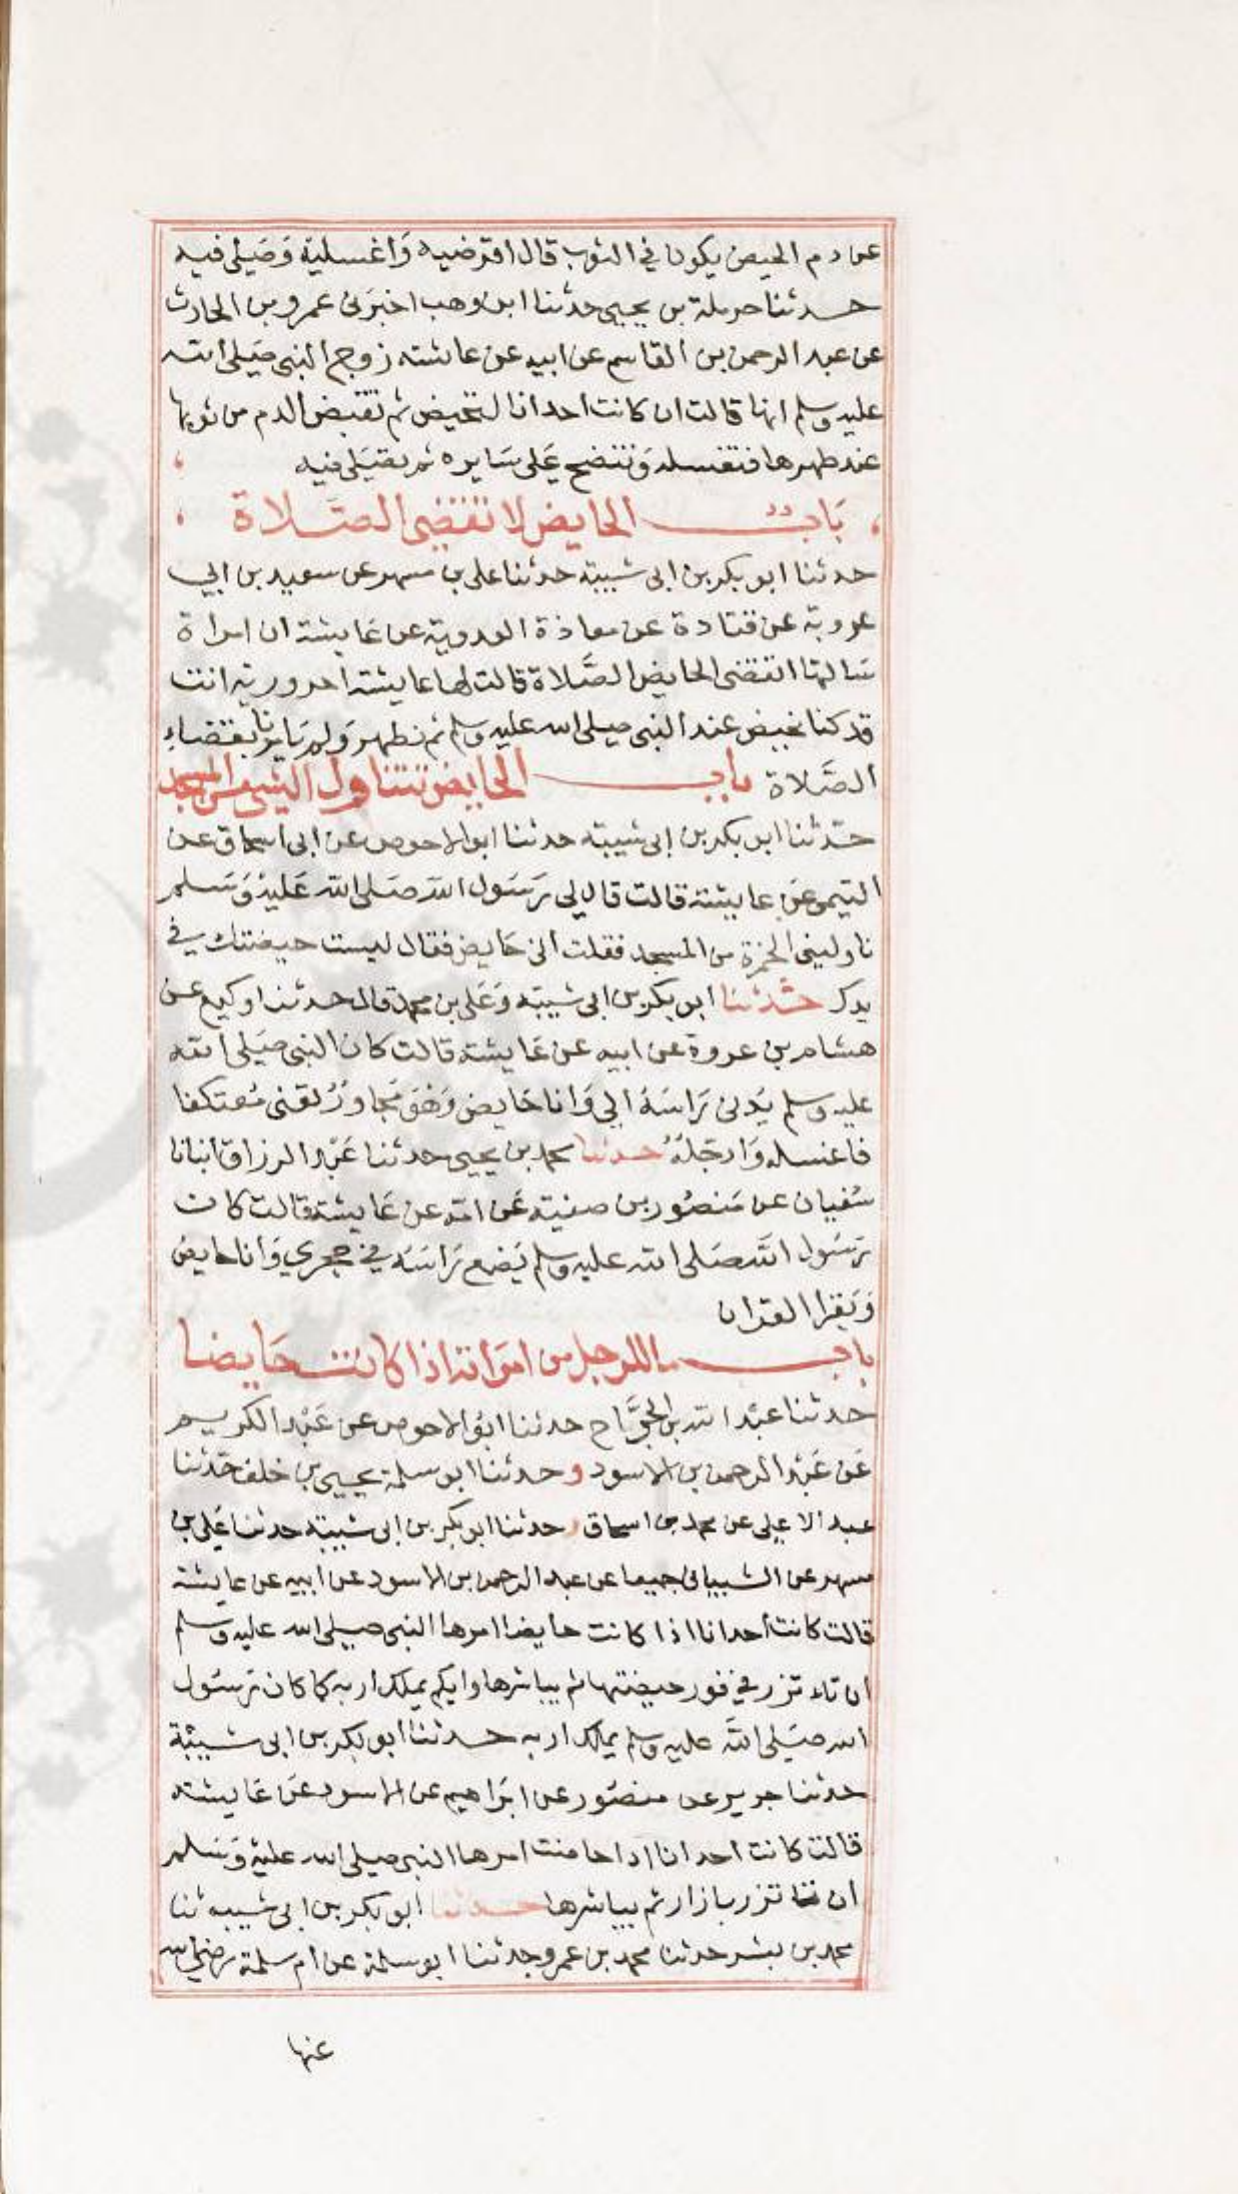 عن دم الحيض يكون في الثوب قال اقرضيه وَاغسليه وَصَلي فيه
حدثنا حرملة بن يحيى حدثنا ابن وهب اخبرَني عمرو بن الحارث
عن عبد الرحمن بن القاسم عن ابيه عن عائشة زوج النبي صَلى الله
عليه وسلم انها قالت ان كانت احدانا لتحيض ثم تقبض الدم من ثوبها
عند طهرها فتغسله وَتنضح عَلى سَايره ثم تصَلي فيه
بَاب الحايض لا تقضي الصَّلاة
حدثنا ابو بكر بن ابي شيبة حدثنا علي بن مسهر عن سعيد بن ابي
عروبة عن قتادة عن معاذة العدوية عن عَايشة ان امراة
سَالتها اتقضي الحايض الصَّلاة قالت لها عايشة احرورية انت
قد كنا نحيض عند النبي صلى الله عليه وسلم ثم نطهر وَلم يَامرنا بقضاء
الصَّلاة باب الحايض تتناول الشي من المسجد
حدّثنا ابو بكر بن ابي شيبة حدثنا ابو الاحوص عن ابي اسحاق عن
التيمي عن عايشة قالت قال لي رَسَول الله صَلى الله عَليهْ وَسَلم
ناوليني الخمرة من المسجد فقلت اني حَايض فقال ليست حيضتك في
يدك حدثنا ابو بكر بن ابي شيبة وَعَلي بن محمد قال حدثنا وكيع عن
هشام بن عروة عن ابيه عن عَايشة قالت كان النبي صَلى الله
عليه وسلم يَدني رَاسَهُ الي وَانا حَايض وَهوَ مجَاورٌ تعني مُعتكفا
فاغسله وَارجّلهُ حدثنا محمد بن يحيى حدثنا عَبْد الرزاق انبانا
سُفيان عن مَنصُور بن صفية عَن امّه عن عَايشة قالت كان
رَسَول الله صَلى الله عليه وسلم يَضع رَاسَه في حجري وَانا حايض
وَيقرا القران
باب ما للرجل من امرَاته اذا كانت حَايضا
حدثنا عبْد الله بن الجرَّاح حدثنا ابوُ الاحوص عن عَبْد الكريم
عَن عَبْد الرحمن بن الاسود وحدثنا ابو سلمة يحيى بن خلف حَدثنا
عبد الاعلى عن محمد بن اسحاق وحدثنا ابو بكر بن ابي شيبة حدثنا عَلي بن
مسهر عن الشيباني جميعا عن عبد الرحمن بن الاسود عن ابيه عن عايشة
قالت كانت احدانا اذا كانت حايضا امرها النبي صلى الله عليه وسلم
ان تاتزر في فور حيضتها ثم يباشرها وايكم يملك اربه كما كان رَسَول
الله صَلى الله عليه وسلم يملك اربه حدثنا ابو بكر بن ابي شيبة
حدثنا جرير عن منصُور عن ابرَاهيم عن الاسود عن عَايشة
قالت كانت احدانا اذا حاضت امرها النبي صلى الله عليهْ وَسَلم
ان تتزر بازار ثم يباشرها حدثنا ابو بكر بن ابي شيبه ثنا
محمد بن بشر حدثنا محمد بن عمرو حدثنا ابو سلمة عن ام سلمة رضي الله
عنها